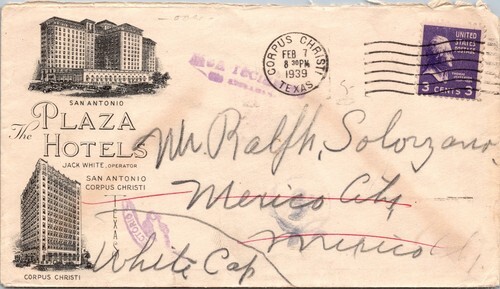 SAN ANTONIO
The PLAZA
HOTELS
JACK WHITE, OPERATOR
SAN ANTONIO
CORPUS CHRISTI
TEXAS
CORPUS CHRISTI
CORPUS CHRISTI
FEB 7
8 30 PM
1939
TEXAS
UNITED
STATES
POSTAGE
3 CENTS 3
Mr. Ralph, Solorzano
Mexico City
Mexico
White Cap